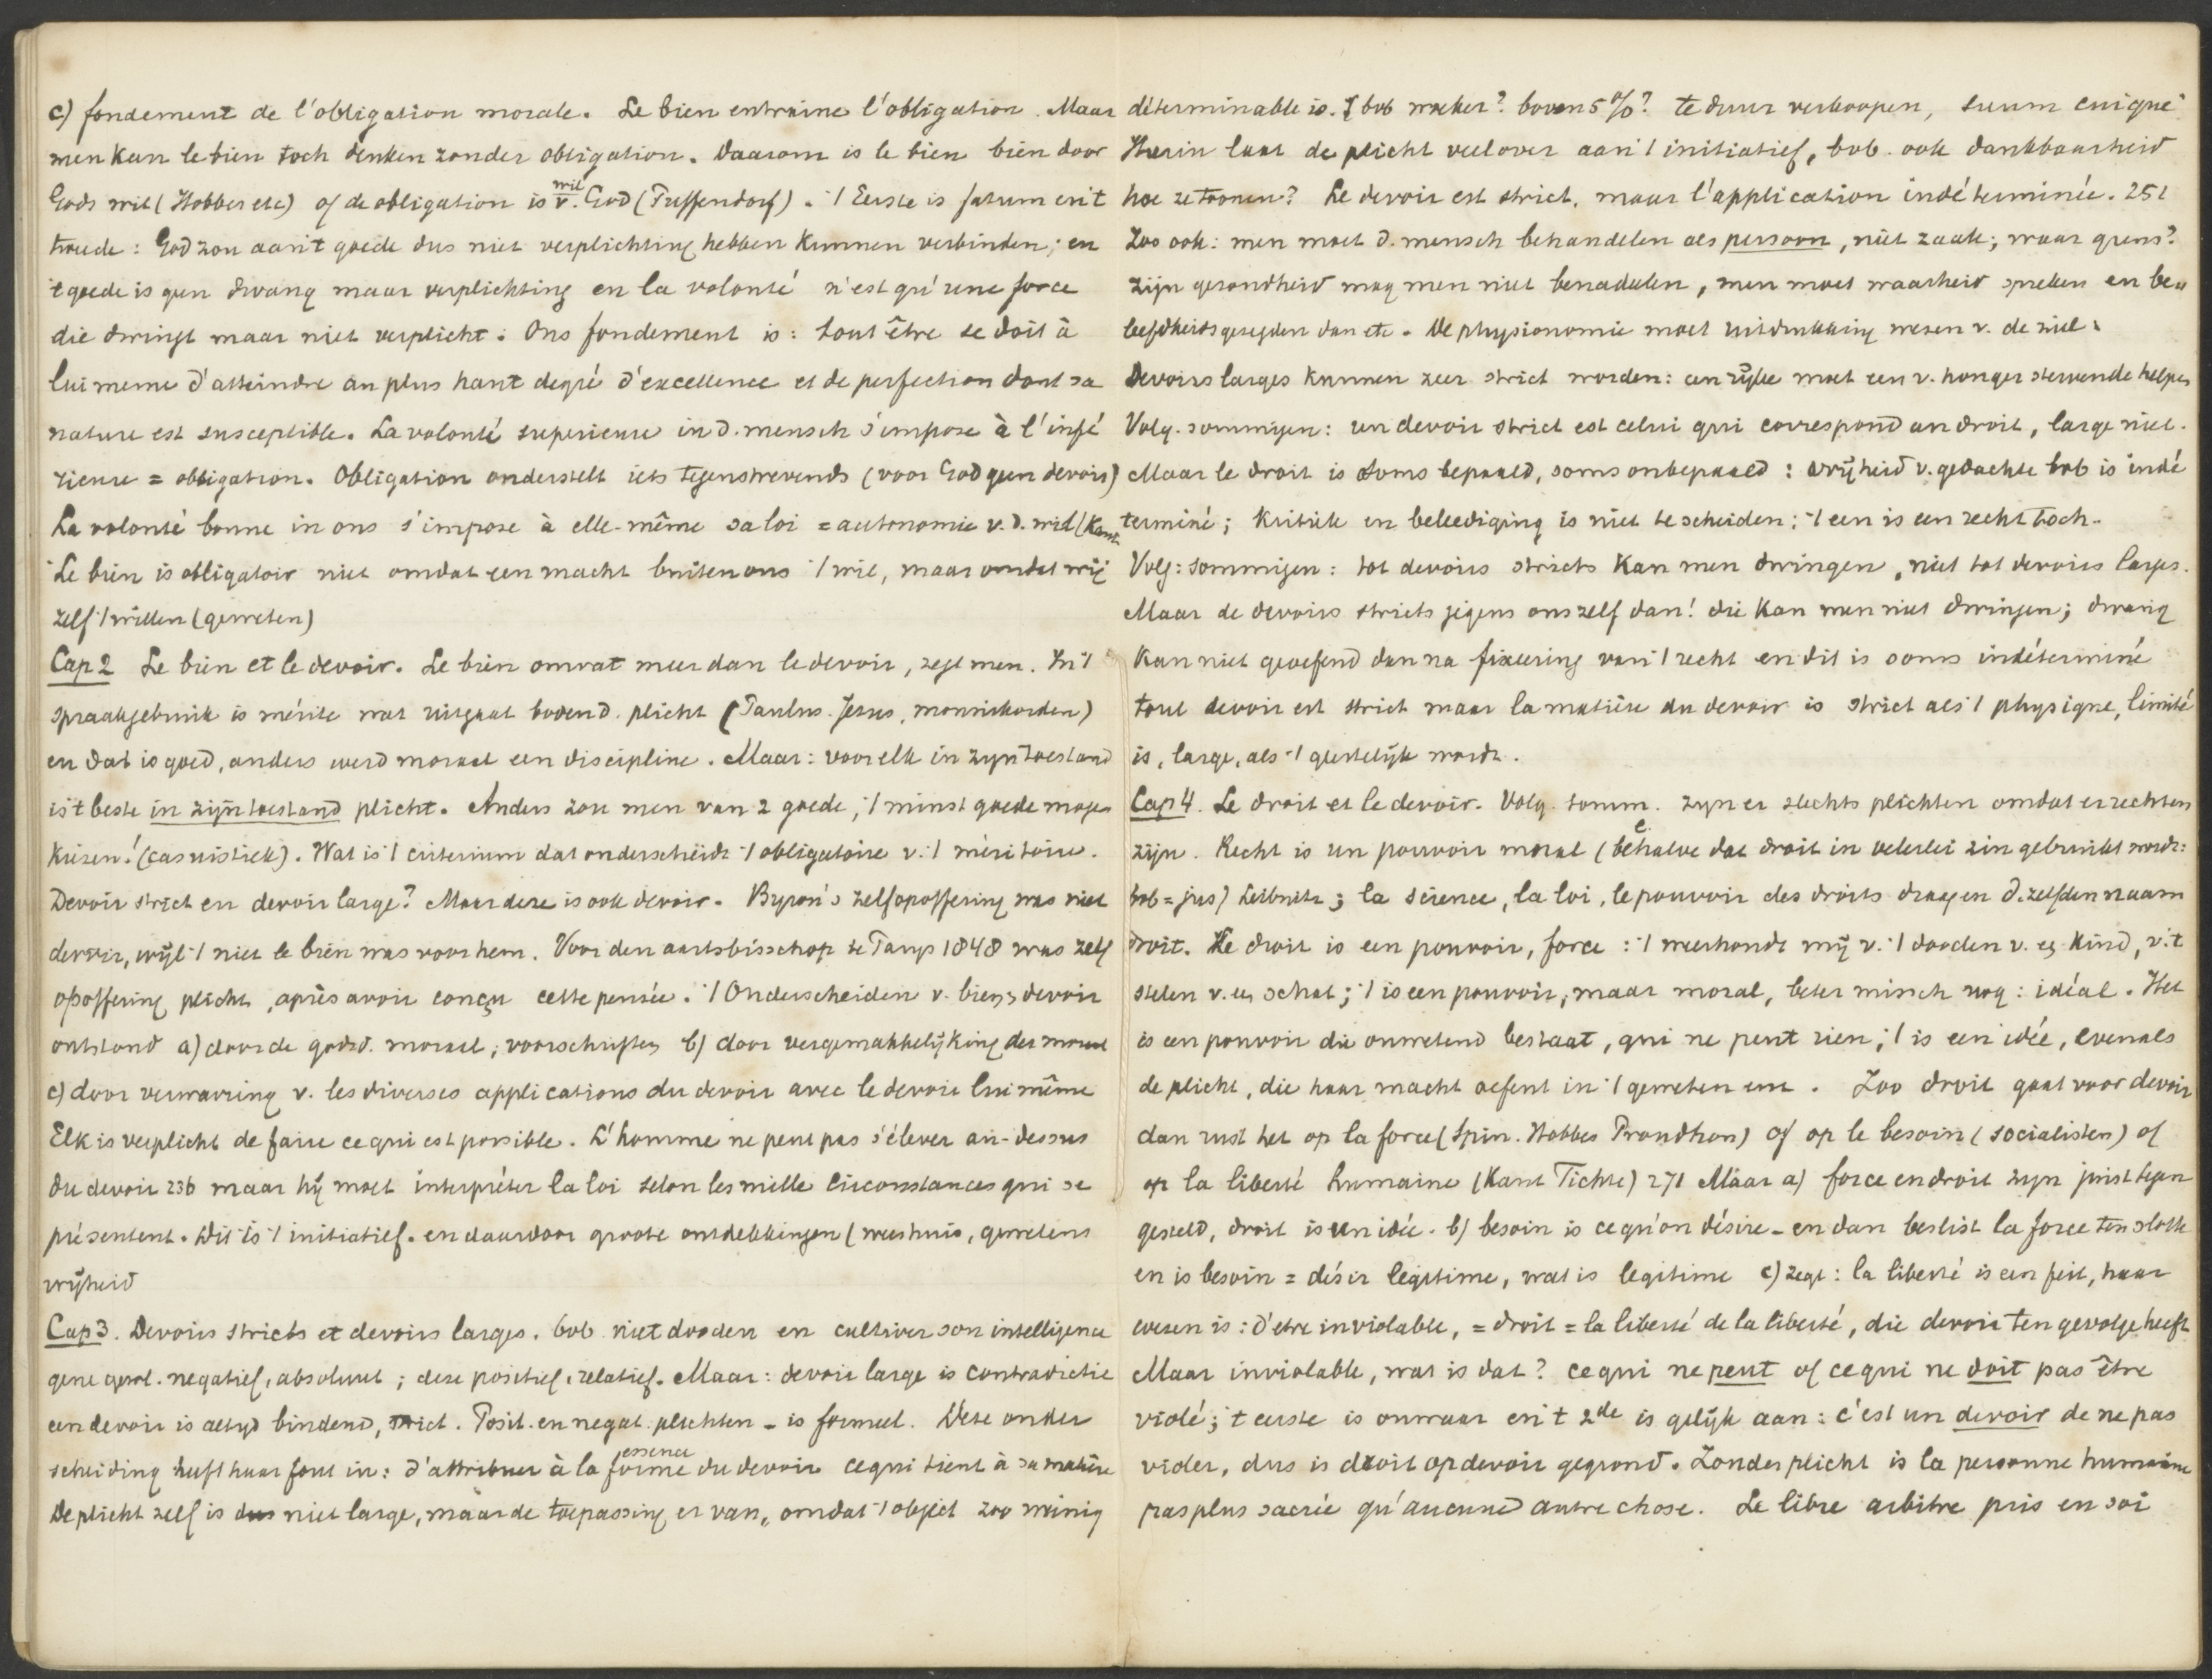 c) fondement de l'obligation morale. Le bien entraine l'obligation. Maar
men kan le bien toch denken zonder obligation. Daarom is le bien bien door
Gods wil (Hobbes etc) of de obligation is wil v. God (Puffendorf). 't Eerste is fatum en 't
tweede: God zou aan 't goede dus niet verplichting hebben kunnen verbinden; en
't goede is geen dwang maar verplichting en la volonté n'est qu'une force
die dwingt maar niet verplicht. Ons fondement is: tout être se doit à
lui meme d'atteindre au plus haut degré d'excellence et de perfection dont sa
nature est susceptible. La volonté superieure in d. mensch s'impose à l'infé
rieure = obligation. Obligation onderstelt iets tegenstrevends (voor God geen devoir)
La volonté bonne in ons s'impose à elle-même sa loi = autonomie v. d. wil (Kant
Le bien is obligatoir niet omdat een macht buiten ons 't wil, maar omdat wij
zelf 't willen (geweten)
Cap 2 Le bien et le devoir. Le bien omvat meer dan le devoir, zegt men. In 't
spraakgebruik is mérite wat uitgaat boven d. plicht (Paulus. Jezus, monniksorden)
en dat is goed, anders werd moraal een discipline. Maar: voor elk in zijn toestand
is 't beste in zijn toestand plicht. Anders zou men van 2 goede, 't minst goede mogen
kiezen! (casuistiek). Wat is 't criterium dat onderscheidt 't obligatoire v. 't méritoire.
Devoir strict en devoir large? Maar deze is ook devoir. Byron's zelfopoffering was niet
devoir, wijl 't niet le bien was voor hem. Voor den aartsbisschop te Parijs 1848 was zelf
opoffering plicht, après avoir conçu cette pensée. 't Onderscheiden v. bien en devoir
ontstond a) door de godsd. moraal, voorschriften b) door vergemakkelijking der moraal
c) door verwarring v. les diverses applications du devoir avec le devoir lui même
Elk is verplicht de faire ce qui est possible. L'homme ne peut pas s'élever au-dessus
du devoir 236 maar hij moet interpréter la loi selon les mille circonstances qui se
présentent. Dit is 't initiatief. en daardoor groote ontdekkingen (weeshuis, gewetens
vrijheid
Cap 3. Devoirs stricts et devoirs larges. bvb. niet dooden en cultiver son intelligence
gene gew. negatief, absoluut; deze positief, relatief. Maar: devoir large is contradictie
een devoir is altijd bindend, strict. Posit. en negat. plichten - is formeel. Deze onder
scheiding heeft haar fout in: d'attribuer à la forme essence du devoir ce qui tient à sa matière
De plicht zelf is dus niet large, maar de toepassing er van, omdat 't object zoo weinig
déterminable is. bvb woeker? boven 5%? te duur verkoopen, suum cuique
Hierin laat de plicht veel over aan 't initiatief, bvb. ook dankbaarheid
hoe te toonen? Le devoir est strict, maar l'application indéterminée. 251
Zoo ook: men moet d. mensch behandelen als persoon, niet zaak; waar grens?
Zijn gezondheid mag men niet benadelen, men moet waarheid spreken en be„
leefdheidsgezegden dan etc. De physionomie moet uitdrukking wezen v. de ziel.
Devoirs larges kunnen zeer strict worden: een rijke moet een v. honger stervende helpen
Volg. sommigen: un devoir strict est celui qui correspond au droit, large niet.
Maar le droit is soms bepaald, soms onbepaald: vrijheid v. gedachte bvb is indé
terminé; Kritiek en beleediging is niet te scheiden; 't een is een recht toch.
Volg: sommigen: tot devoirs stricts kan men dwingen, niet tot devoirs larges.
Maar de devoirs stricts jegens ons zelf dan! die kan men niet dwingen; dwang
kan niet geoefend dan na fixeering van 't recht en dit is soms indéterminé
tout devoir est strict maar la matière du devoir is strict als 't physique, limité
is, large, als 't geestelijk wordt.
Cap 4. Le droit et le devoir. Volg. somm. zijn er slechts plichten omdat er rechten
zijn. Recht is un pouvoir moral (behalve dat droit in velerlei zin gebruikt wordt:
bvb = jus) Leibnitz; la science, la loi, le pouvoir des droits dragen d. zelfden naam
droit. Le droit is een pouvoir, force: 't weerhoudt mij v. 't dooden v. een kind, v. 't
stelen v. een schat; 't is een pouvoir, maar moral, beter missch nog: idéal. Het
is een pouvoir die onwetend bestaat, qui ne peut rien; 't is een idée, evenals
de plicht, die haar macht oefent in 't geweten enz. Zoo droit gaat voor devoir
dan rust het op la force (Spin. Hobbes Proudhon) of op le besoin (socialisten) of
op la liberté humaine (Kant Fichte) 271 Maar a) force en droit zijn juist tegen
gesteld, droit is un idée. b) besoin is ce qu'on désire - en dan beslist la force ten slotte
en is besoin = désir legitime, wat is legitime c) zegt: la liberté is een feit, haar
wezen is: d'etre inviolable, = droit = la liberté de la liberté, die devoir ten gevolge heeft
Maar inviolable, wat is dat? ce qui ne peut of ce qui ne doit pas être
violé; 't eerste is onwaar en 't 2de is gelijk aan: c'est un devoir de ne pas
violer, dus is droit op devoir gegrond. Zonder plicht is la personne humaine
pas plus sacrée qu'aucune autre chose. Le libre arbitre pris en soi